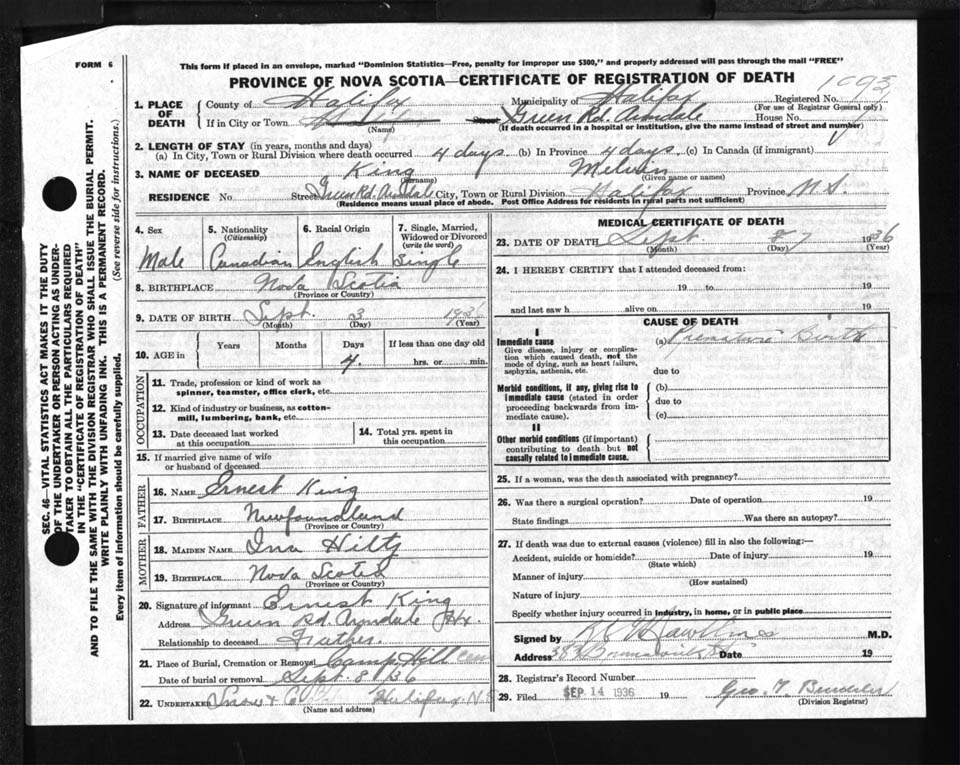 FORM 6
This form if placed in an envelope, marked "Dominion Statistics—Free, penalty for improper use $300," and properly addressed will pass through the mail "FREE"
PROVINCE OF NOVA SCOTIA—CERTIFICATE OF REGISTRATION OF DEATH
1. PLACE OF DEATH County of Halifax Municipality of Halifax Registered No. 1093
(For use of Registrar General only)
If in City or Town Street Green Rd. Armdale House No.
(Name) (If death occurred in a hospital or institution, give the name instead of street and number)
2. LENGTH OF STAY (in years, months and days)
(a) In City, Town or Rural Division where death occurred 4 days (b) In Province 4 days (c) In Canada (if immigrant)
3. NAME OF DECEASED King Melvin
(Surname) (Given name or names)
RESIDENCE No. Street Green Rd. Armdale City, Town or Rural Division Halifax Province N.S.
(Residence means usual place of abode. Post Office Address for residents in rural parts not sufficient)
4. Sex 5. Nationality (Citizenship) 6. Racial Origin 7. Single, Married, Widowed or Divorced (write the word)
Male Canadian English Single
8. BIRTHPLACE Nova Scotia
(Province or Country)
9. DATE OF BIRTH Sept. 3 1936
(Month) (Day) (Year)
10. AGE in Years Months Days If less than one day old
4. hrs. or min.
OCCUPATION
11. Trade, profession or kind of work as spinner, teamster, office clerk, etc.
12. Kind of industry or business, as cotton-mill, lumbering, bank, etc.
13. Date deceased last worked at this occupation
14. Total yrs. spent in this occupation
15. If married give name of wife or husband of deceased
FATHER
16. NAME Ernest King
17. BIRTHPLACE Newfoundland
(Province or Country)
MOTHER
18. MAIDEN NAME Ina Hiltz
19. BIRTHPLACE Nova Scotia
(Province or Country)
20. Signature of informant Ernest King
Address Green Rd. Armdale Hx.
Relationship to deceased Father.
21. Place of Burial, Cremation or Removal Camp Hill Cem
Date of burial or removal Sept. 8 '36
22. UNDERTAKER Snow & Co Halifax N.S
(Name and address)
MEDICAL CERTIFICATE OF DEATH
23. DATE OF DEATH Sept. 7 1936
(Month) (Day) (Year)
24. I HEREBY CERTIFY that I attended deceased from:
19 to 19
and last saw h alive on 19
CAUSE OF DEATH
I
Immediate cause (a) Premature Birth
Give disease, injury or complication which caused death, not the mode of dying, such as heart failure, asphyxia, asthenia, etc.
due to
Morbid conditions, if any, giving rise to immediate cause (stated in order proceeding backwards from immediate cause).
(b)
due to
(c)
II
Other morbid conditions (if important) contributing to death but not causally related to immediate cause.
25. If a woman, was the death associated with pregnancy?
26. Was there a surgical operation? Date of operation 19
State findings Was there an autopsy?
27. If death was due to external causes (violence) fill in also the following:—
Accident, suicide or homicide? Date of injury 19
(State which)
Manner of injury
(How sustained)
Nature of injury
Specify whether injury occurred in industry, in home, or in public place
Signed by M.D.
Address Brunswick St Date 19
28. Registrar's Record Number
29. Filed SEP 14 1936 19 Geo.
(Division Registrar)
SEC. 46—VITAL STATISTICS ACT MAKES IT THE DUTY
OF THE UNDERTAKER OR PERSON ACTING AS UNDER-
TAKER TO OBTAIN ALL THE PARTICULARS REQUIRED
IN THE "CERTIFICATE OF REGISTRATION OF DEATH"
AND TO FILE THE SAME WITH THE DIVISION REGISTRAR WHO SHALL ISSUE THE BURIAL PERMIT.
WRITE PLAINLY WITH UNFADING INK. THIS IS A PERMANENT RECORD.
Every item of information should be carefully supplied. (See reverse side for instructions.)